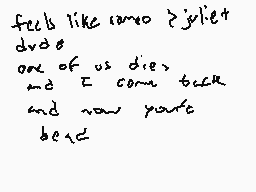 feels like romeo & juliet
dude
one of us dies
and I come back
and now you're
dead